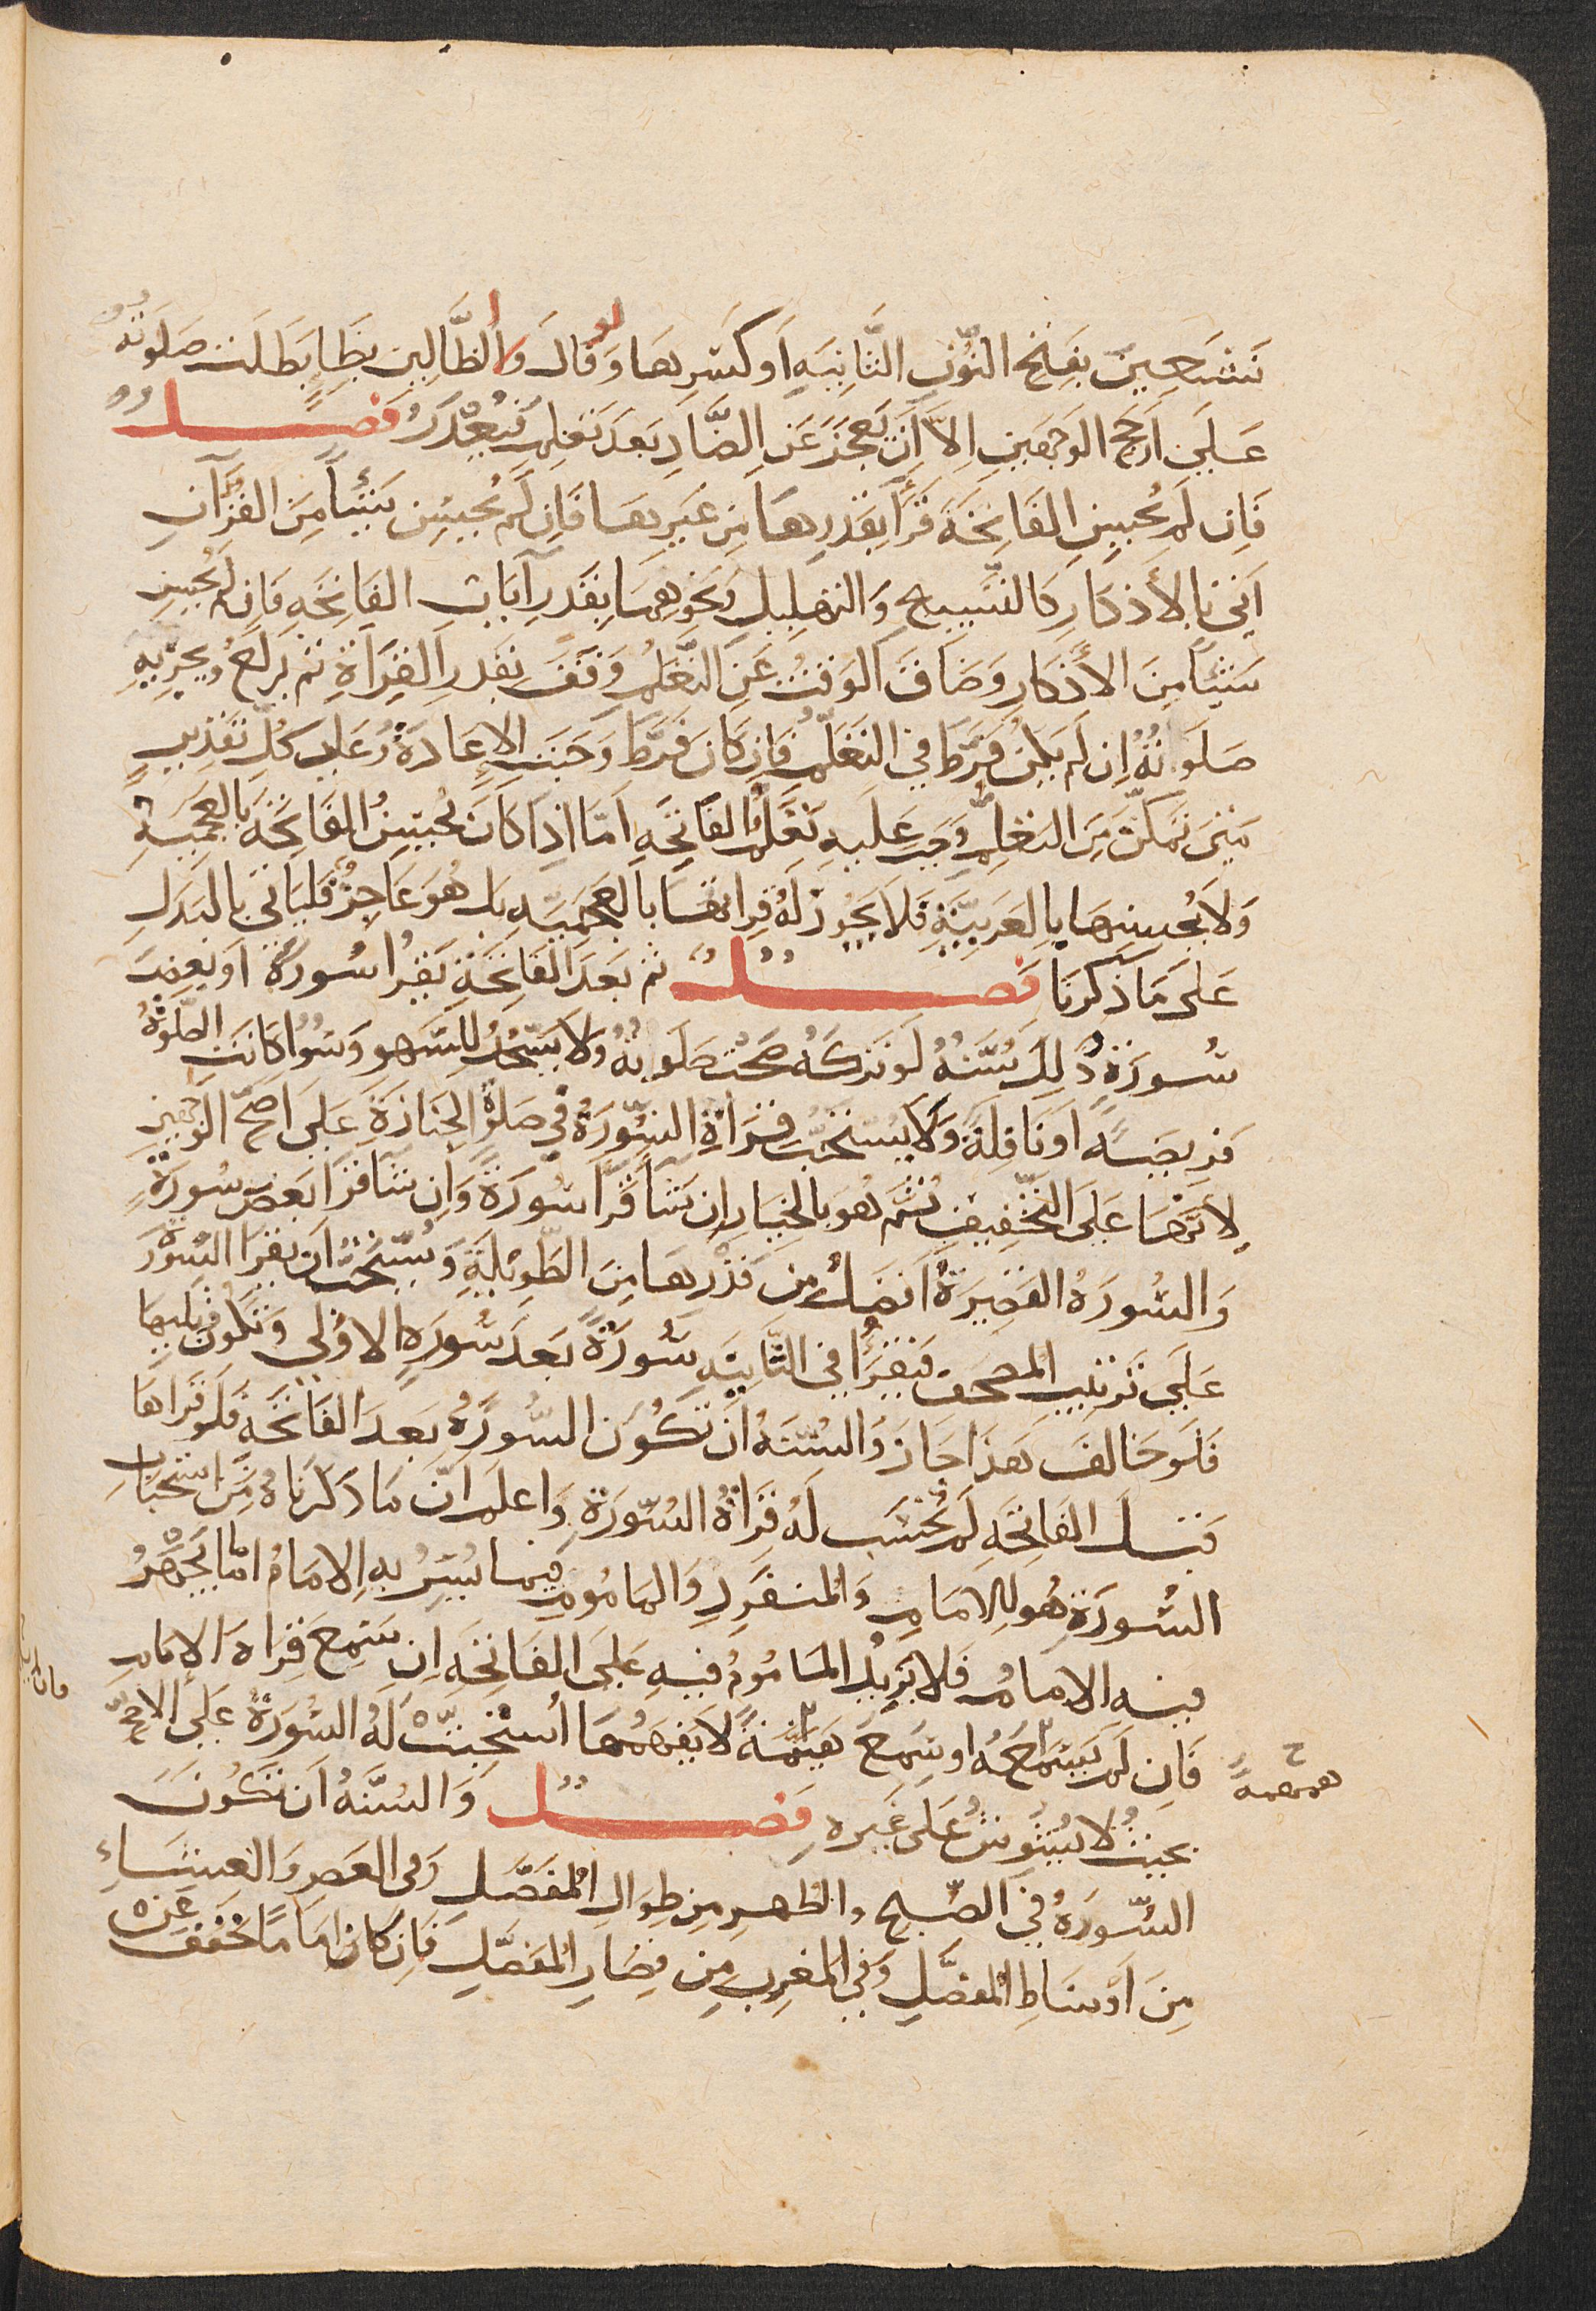 نَسْتَعِينَ بِفَتْحِ النُّونِ الثَّانِيَةِ اَوْ كَسْرِهَا وَلَو قَالَ وَلَا الظَّالِّينَ بِظَاءٍ بَطَلَتْ صَلَوتُهُ
عَلَى اَرْجَحِ الوَجْهَيْنِ اِلَّا اَنْ يَعْجَزَ عَنِ الضَّادِ بَعْدَ تَعَلُّمٍ فَيُعْذَرُ فَصْــلٌ
فَاِنْ لَمْ يُحْسِنِ الفَاتِحَةَ قَرَأَ بِقَدْرِهَا مِنْ غَيْرِهَا فَاِنْ لَمْ يُحْسِنْ شَيْئًا مِنَ القُرْآنِ
اَتَى بِالأَذْكَارِ كَالتَّسْبِيحِ وَالتَهْلِيلِ وَنَحْوِهِمَا بِقَدْرِ آيَاتِ الفَاتِحَةِ فَاِنْ لَمْ يُحْسِنْ
شَيْئًا مِنَ الأَذْكَارِ وَضَاقَ الوَقْتُ عَنِ التَّعَلُّمِ وَقَفَ بِقَدْرِ القِرَاَةِ ثم يَرْكَعُ وَيُجْزِيهِ
صَلَوتُهُ اِنْ لَمْ يَكُنْ فَرَّطَ فِي التَعَلُّمِ فَاِنْ كَانَ فَرَّطَ وَجَبَتِ الاِعَادَةُ وَعَلَى كُلِّ تَقْدِيرٍ
مَتَى تَمَكَّنَ مِنَ التَعَلُّمِ وَجَبَ عَلَيهِ تَعَلُّمُ الفَاتِحَةِ اَمَّا اِذَا كَانَ يُحْسِنُ الفَاتِحَةَ بِالعَجَمِيَّةِ
وَلَا يُحْسِنُهَا بِالعَرَبِيَّةِ فَلَا يَجُوزُ لَهُ قِراتهَا بِالعَجَمِيَّةِ بَلْ هُوَ عَاجِزٌ فَلْيَأتِى بِالبَدَلِ
عَلَى مَا ذَكَرْنَا فَصْــلٌ ثم بَعْدَ الفَاتِحَةِ يَقْرَأُ سُورَةً اَوْ بَعْضَ
سُورَةٍ وَذَلِكَ سُنَّةٌ لَوْ تَرَكَهُ صَحَّتْ صَلَوتُهُ وَلَا يَسْجُدُ لِلسَّهْوِ وَسَوَا كَانَتِ الصَّلَوةُ
فَرِيضَةً اَوْ نَافِلَةً وَلَا يُسْتَحَبُّ قِرَاَةُ السُّورَةِ فِي صَلَوةِ الجَنَازَةِ عَلَى اَصَحِّ الوَجْهَيْنِ
لِأَنَّهَا عَلَى التَّخْفِيفِ ثُمَّ هُوَ بِالخِيَارِ اِنْ شَا قَرَا سُورَةً وَاِنْ شَا قَرَا بَعْضَ سُورَةٍ
وَالسُّورَةُ القَصِيرَةُ اَفْضَلُ مِنْ قَدْرِهَا مِنَ الطَّوِيلَةِ وَيُسْتَحَبُّ اَنْ يَقْرَا السُّوَرَ
عَلَى تَرْتِيبِ المصحف فَيَقْرَأُ فِي الثَّانِيَةِ سُورَةً بَعْدَ سُورَةِ الاُولَى وَتَكُونُ تَلِيهَا
فَلَوْ خَالَفَ هَذَا جَازَ وَالسُّنَّةُ اَنْ تَكُونَ السُّورَةُ بَعْدَ الفَاتِحَةِ فَلَوْ قَرَاهَا
قَبْـلَ الفَاتِحَةِ لَمْ تُحْسَبْ لَهُ قِرَاَةُ السُّورَةِ وَاعلم اَنَّ مَا ذَكَرْنَاهُ مِنْ اسْتِحْبَابِ
السُّورَةِ هُوَ لِلاِمَامِ وَالمُنْفَرِدِ وَالمَامُومِ فِيمَا يُسِرُّ بِهِ الاِمَامُ اَمَّا مَا يَجْهَرُ
فِيهِ الاِمَامُ فَلَا يَزِيدُ المَامُومُ فِيهِ عَلَى الفَاتِحَةِ اِنْ سَمِعَ قِرَاةَ الاِمَامِ
فَاِنْ لَمْ يَسْمَعْهُ اَوْ سَمِعَ هَيْمَنَةً لَا يَفْهَمُهَا اُسْتُحِبَّتْ لَهُ السُّورَةُ عَلَى الاَصَحِّ
ح
همهمةً
بِحَيْثُ لَا يُشَوِّشُ عَلَى غَيْرِهِ فَصْــلٌ وَالسُّنَّةُ اَنْ تَكُونَ
السُّورَةُ فِي الصُّبْحِ والظهرِ مِنْ طِوَالِ المُفَصَّلِ وَفى العَصرِ وَالعِشَاءِ
مِنَ اَوْسَاطِ المُفَصَّلِ وَفِي المَغْرِبِ مِنْ قِصَارِ المُفَصَّلِ فَاِنْ كَانَ اِمَامًا خَفَّفَ عَنْ